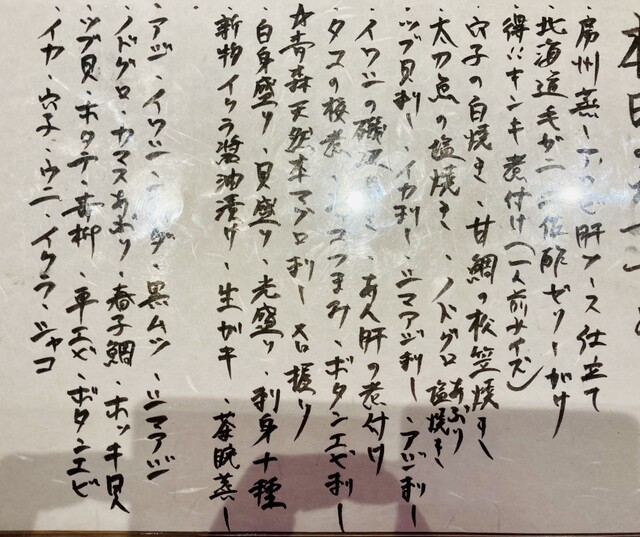 本日の
・房州蒸しアワビ肝ソース仕立て
・北海道毛ガニ二倍酢ゼリーがけ
・得!!キンキ煮付け(一人前サイズ)
・穴子の白焼き・甘鯛の松笠焼き
・太刀魚の塩焼き・ノドグロ あぶり 塩焼き
・ツブ貝刺し・イカ刺し・シマアジ刺し・アジ刺し
・イワシの磯辺・あん肝の煮付け
・タコの桜煮・つまみ・ボタンエビ刺し
☆青森天然本マグロ刺し 大トロ 握り
・白身盛り・貝盛り・光盛り・刺身十種
・新物イクラ醤油漬け・生ガキ・茶碗蒸し
・アジ・イワシ・黒ムツ・シマアジ
・ノドグロ・カマスあぶり・春子鯛・ホッキ貝
・ツブ貝・ホタテ・青柳・車エビ・ボタンエビ
・イカ・穴子・ウニ・イクラ・シャコ